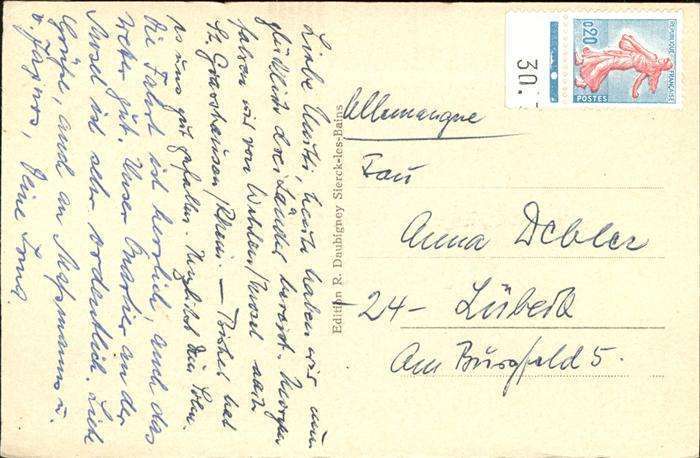 Liebe Mutti, heute haben wir nun
glücklich drei Länder bereist. Morgen
fahren wir von Wehlen/Mosel nach
St. Goarshausen/Rhein. — Bisher hat
es uns gut gefallen. Herzlichst Dein
Die Fahrt ist herrlich, auch das
Wetter gut. Unser Quartier an der
Mosel ist sehr ordentlich. Liebe
Grüße, auch an u.
Deine
Edition R. Daubigney Sierck-les-Bains
30.
0,20
RÉPUBLIQUE FRANÇAISE
POSTES
Allemagne
Frau
Anna Debler
24- Lübeck
Am Burgfeld 5.